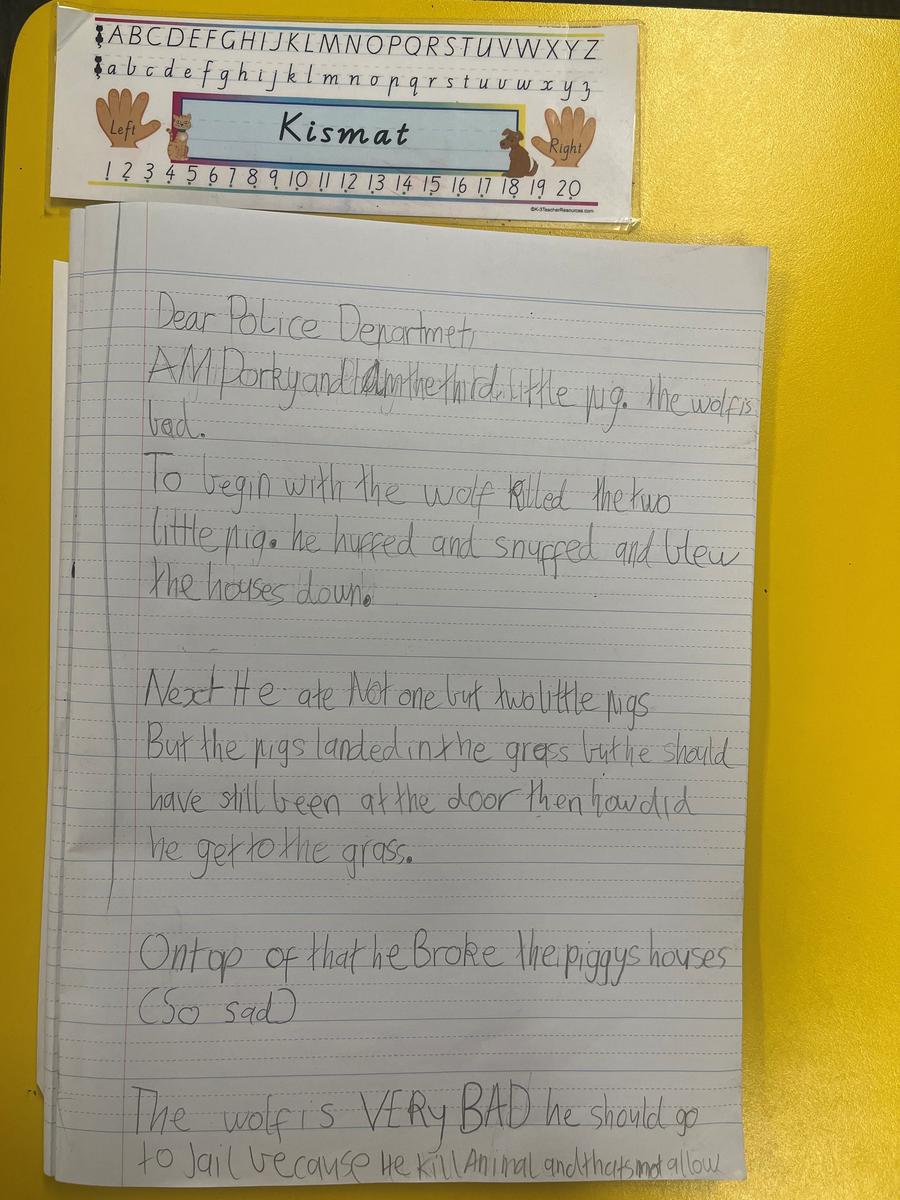 ABCDEFGHIJKLMNOPQRSTUVWXYZ
abcdefghijklmnopqrstuvwxyz
Left
Kismat
Right
1 2 3 4 5 6 7 8 9 10 11 12 13 14 15 16 17 18 19 20
©K-3TeacherResources.com
Dear Police Departmet,
AM Porky and I am the third little pig. the wolf is
bad.
To begin with the wolf killed the two
little pig. he huffed and snuffed and blew
the houses down.
Next He ate Not one but two little pigs
But the pigs landed in the grass but he should
have still been at the door then how did
he get to the grass.
On top of that he Broke the piggys houses
(So sad)
The wolf is VERY BAD he should go
to Jail because He kill Animal and thats not allow